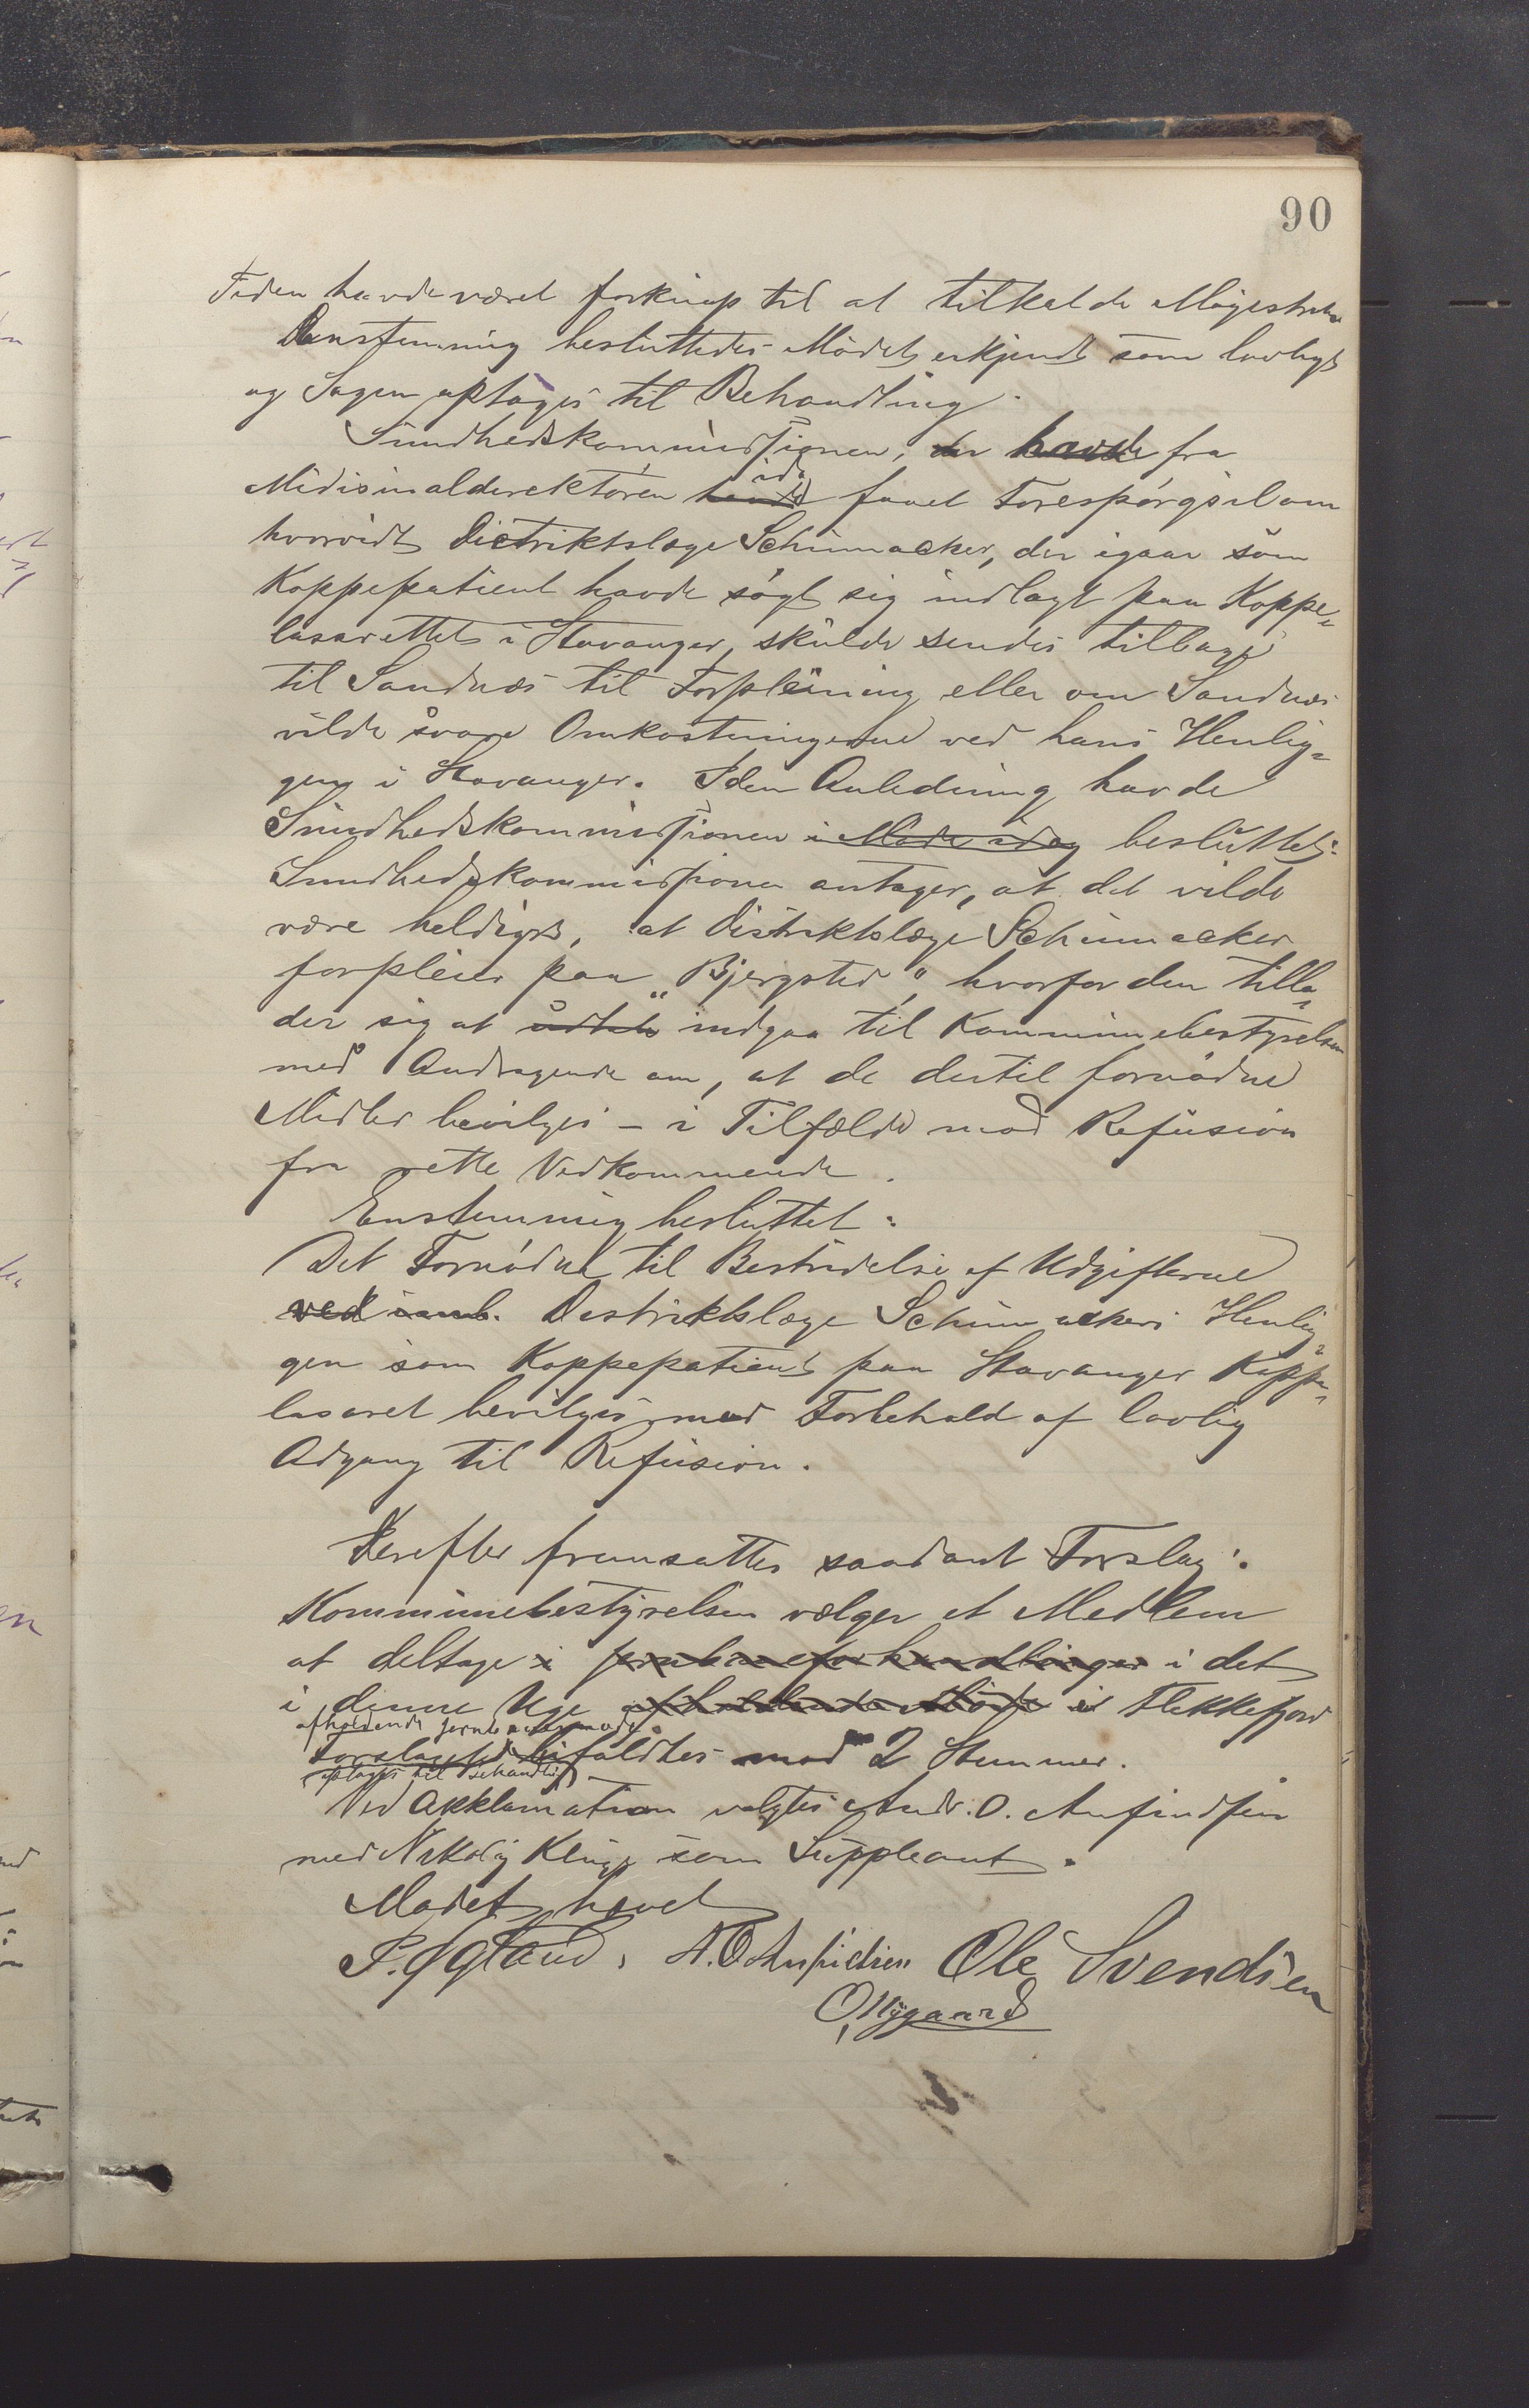 90
Tiden havde været forknap til at tilkalde Magistraten
Enstemmig besluttedes Mødet erkjendt som lovligt
og Sagen optages til Behandling.
Sundhedskommissionen, der havde fra
idag
Medisinaldirektøren havde faaet Forespørgsel om
hvorvidt Distriktslæge Schumacker, der igaar som
Koppepatient havde søgt sig indlagt paa Koppe-
lasarettet i Stavanger, skulde sendes tilbage
til Sandnæs til Forpleining eller om Sandnæs
vilde svare Omkostningerne ved hans Henlig-
gen i Stavanger. I den Anledning havde
Sundhedskommissionen i Møde idag besluttet:
Sundhedskommissionen antager, at det vilde
være heldigst, at Distriktslæge Schumacker
forpleies paa "Bjergsted", hvorfor den tilla-
der sig at indgaa til Kommunebestyrelsen
med Andragende om, at de dertil fornødne
Midler bevilges – i Tilfælde mod Refusion
fra rette Vedkommende.
Enstemmig besluttet:
Det Fornødne til Bestridelse af Udgifterne
ved Distriktslæge Schumackers Henlig-
gen som Koppepatient paa Stavanger Koppe-
lasaret bevilges med Forbehold af lovlig
Adgang til Refusion.
Derefter fremsattes saadant Forslag:
Kommunebestyrelsen vælger et Medlem
at deltage i jernbaneforhandlinger i det
i denne Uge afholdende Møde i Flekkefjord
afholdende jernbanemøde.
Forslaget bifaldtes mod 2 Stemmer.
optages til behandling
Ved Akklamation valgtes Andr. O. Anfindsen
med Nikolaj Kluge som Suppleant.
Mødet hævet
P. Igland, A. O. Anfindsen Ole Svendsen
O. Nygaard